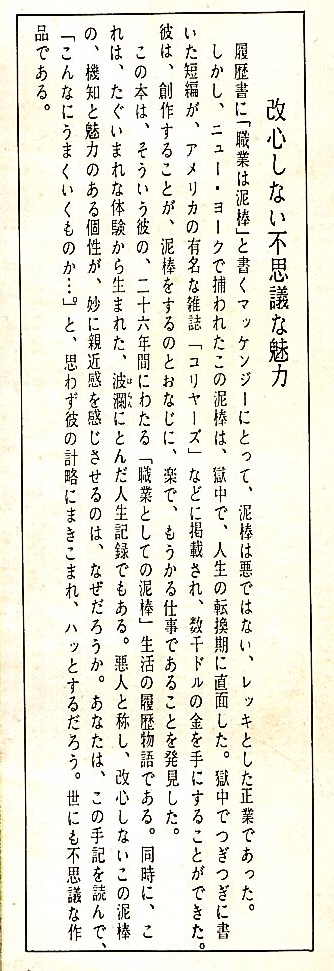 改心しない不思議な魅力
履歴書に「職業は泥棒」と書くマッケンジーにとって、泥棒は悪ではない、レッキとした正業であった。
しかし、ニュー・ヨークで捕われたこの泥棒は、獄中で、人生の転換期に直面した。獄中でつぎつぎに書
いた短編が、アメリカの有名な雑誌「コリヤーズ」などに掲載され、数千ドルの金を手にすることができた。
彼は、創作することが、泥棒をするのとおなじに、楽で、もうかる仕事であることを発見した。
この本は、そういう彼の、二十六年間にわたる「職業としての泥棒」生活の履歴物語である。同時に、こ
れは、たぐいまれな体験から生まれた、波瀾にとんだ人生記録でもある。悪人と称し、改心しないこの泥棒
の、機知と魅力のある個性が、妙に親近感を感じさせるのは、なぜだろうか。あなたは、この手記を読んで、
「こんなにうまくいくものか…」と、思わず彼の計略にまきこまれ、ハッとするだろう。世にも不思議な作
品である。